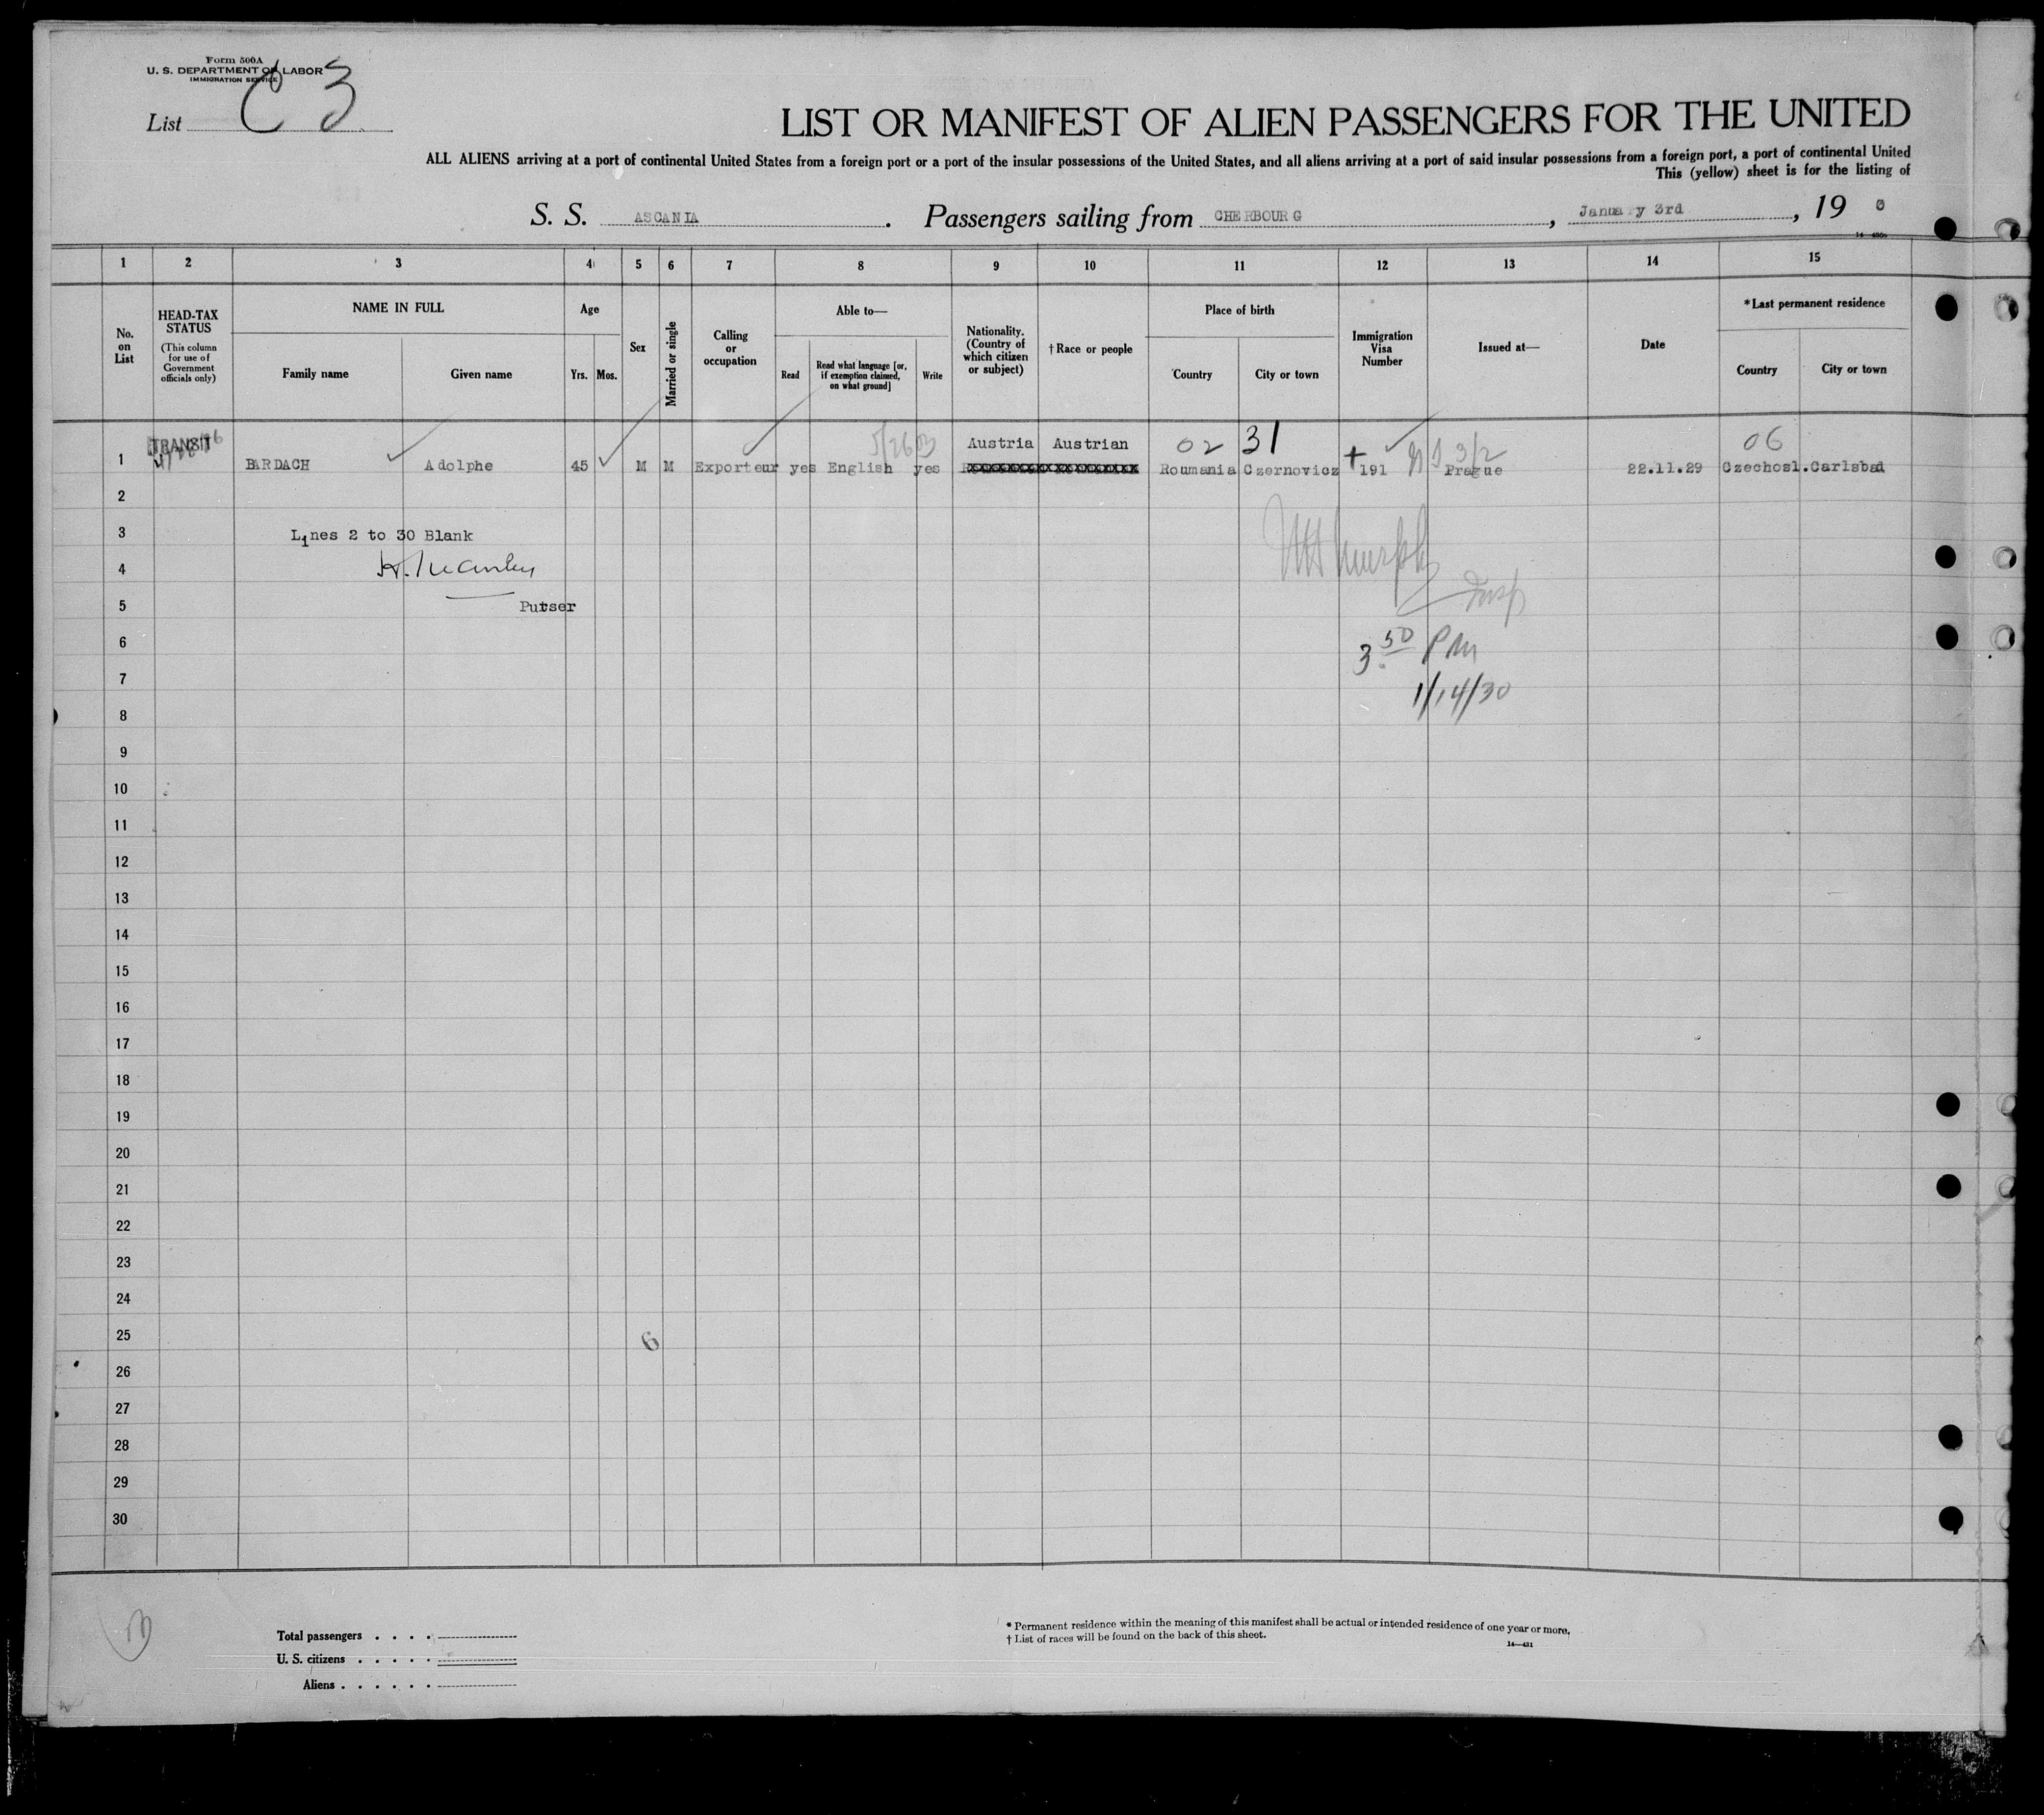 Form 500A
U. S. DEPARTMENT OF LABOR
IMMIGRATION SERVICE
List C 3
LIST OR MANIFEST OF ALIEN PASSENGERS FOR THE UNITED
ALL ALIENS arriving at a port of continental United States from a foreign port or a port of the insular possessions of the United States, and all aliens arriving at a port of said insular possessions from a foreign port, a port of continental United
This (yellow) sheet is for the listing of
S. S. ASCANIA. Passengers sailing from CHERBOURG, January 3rd, 19 0
1 2 3 4 5 6 7 8 9 10 11 12 13 14 15
No. on List
HEAD-TAX STATUS
(This column for use of Government officials only)
NAME IN FULL
Family name Given name
Age
Yrs. Mos.
Sex
Married or single
Calling or occupation
Able to—
Read
Read what language [or, if exemption claimed, on what ground]
Write
Nationality. (Country of which citizen or subject)
† Race or people
Place of birth
Country City or town
Immigration Visa Number
Issued at—
Date
*Last permanent residence
Country City or town
TRANSIT Austria Austrian 02 31 06
1 BARDACH Adolphe 45 M M Exporteur yes English yes Roumania Czernovicz 191 Prague 22.11.29 Czechosl. Carlsbad
2
3 Lines 2 to 30 Blank
4
5 Purser Insp
6 3.50 PM
7 1/14/30
8
9
10
11
12
13
14
15
16
17
18
19
20
21
22
23
24
25 6
26
27
28
29
30
Total passengers . . . .
U. S. citizens . . . . .
Aliens . . . . . .
* Permanent residence within the meaning of this manifest shall be actual or intended residence of one year or more.
† List of races will be found on the back of this sheet.
14—431